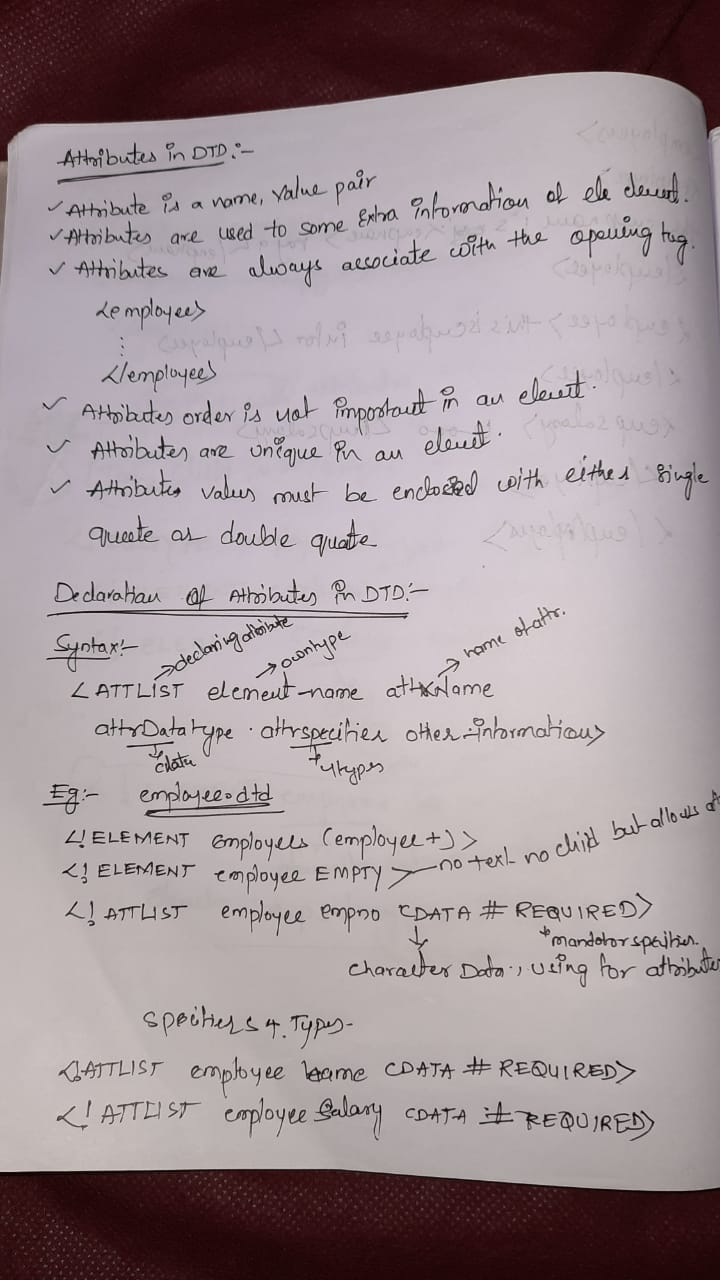 Attributes in DTD:-
✓ Attribute is a name, value pair
✓ Attributes are used to some Extra information of ele elemet.
✓ Attributes are always associate with the opening tag.
<employee>
⋮
</employee>
✓ Attributes order is not important in an elemet.
✓ Attributes are unique in an elemet.
✓ Attributes values must be enclosed with either single
quote or double quote
Declaration of Attributes in DTD:-
Syntax:-
→ declaring attribute → own type → name of attr.
<ATTLIST element-name attrName
attrDatatype . attrspecifier other-information>
cdata 4 types
Eg:- employee.dtd
<!ELEMENT employees (employee+)>
<!ELEMENT employee EMPTY> no text no child but allows
<!ATTLIST employee empno CDATA #REQUIRED>
* mandator specifier.
character Data, using for attribute
Specifiers 4. Types-
<!ATTLIST employee ename CDATA #REQUIRED>
<!ATTLIST employee Salary CDATA #REQUIRED>